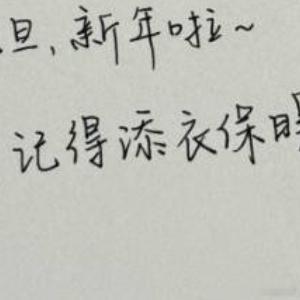 旦,新年啦~
记得添衣保